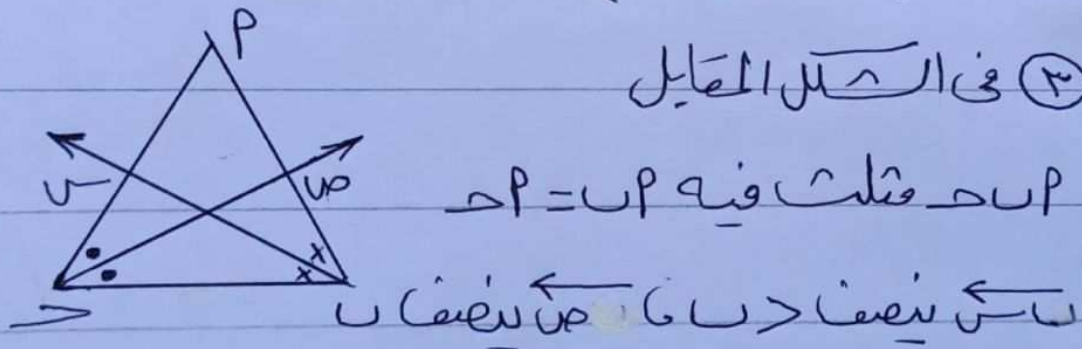 ٣ في الشكل المقابل
أ ب ح مثلث فيه أ ب = أ ح
ب س ينصف > ب ، ص ينصف ب
أ
س
ص
ح
ب